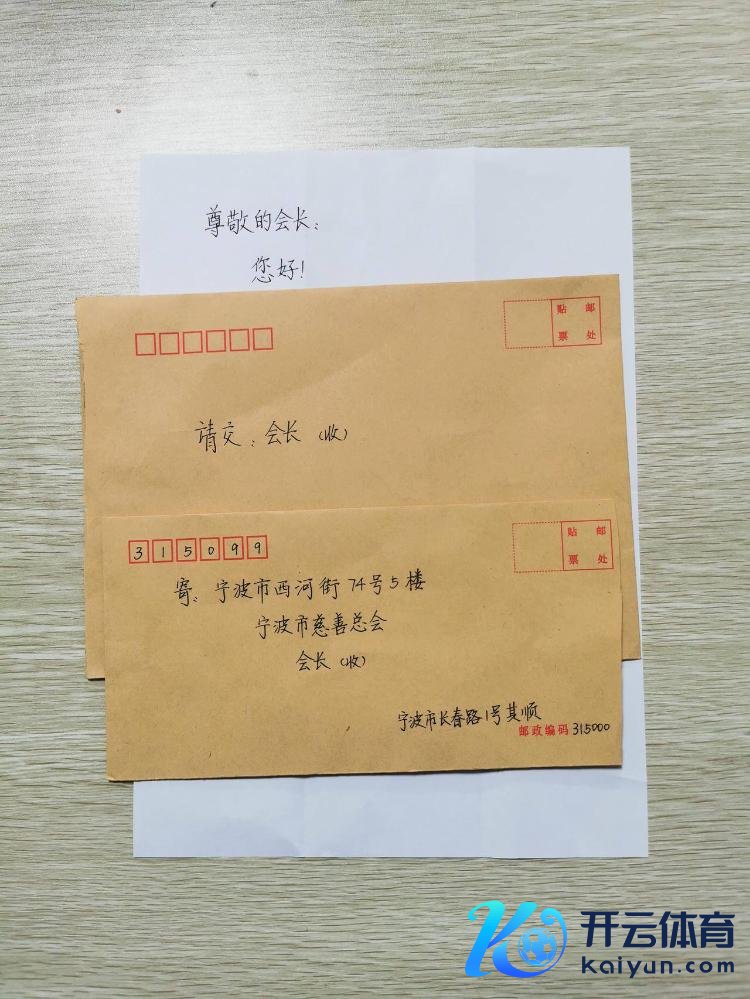 尊敬的会长：
您好！
贴 邮
票 处
请交：会长（收）
315099
贴 邮
票 处
寄：宁波市西河街74号5楼
宁波市慈善总会
会长（收）
宁波市长春路1号其顺
邮政编码 315000
开云体育
kaiyun.com